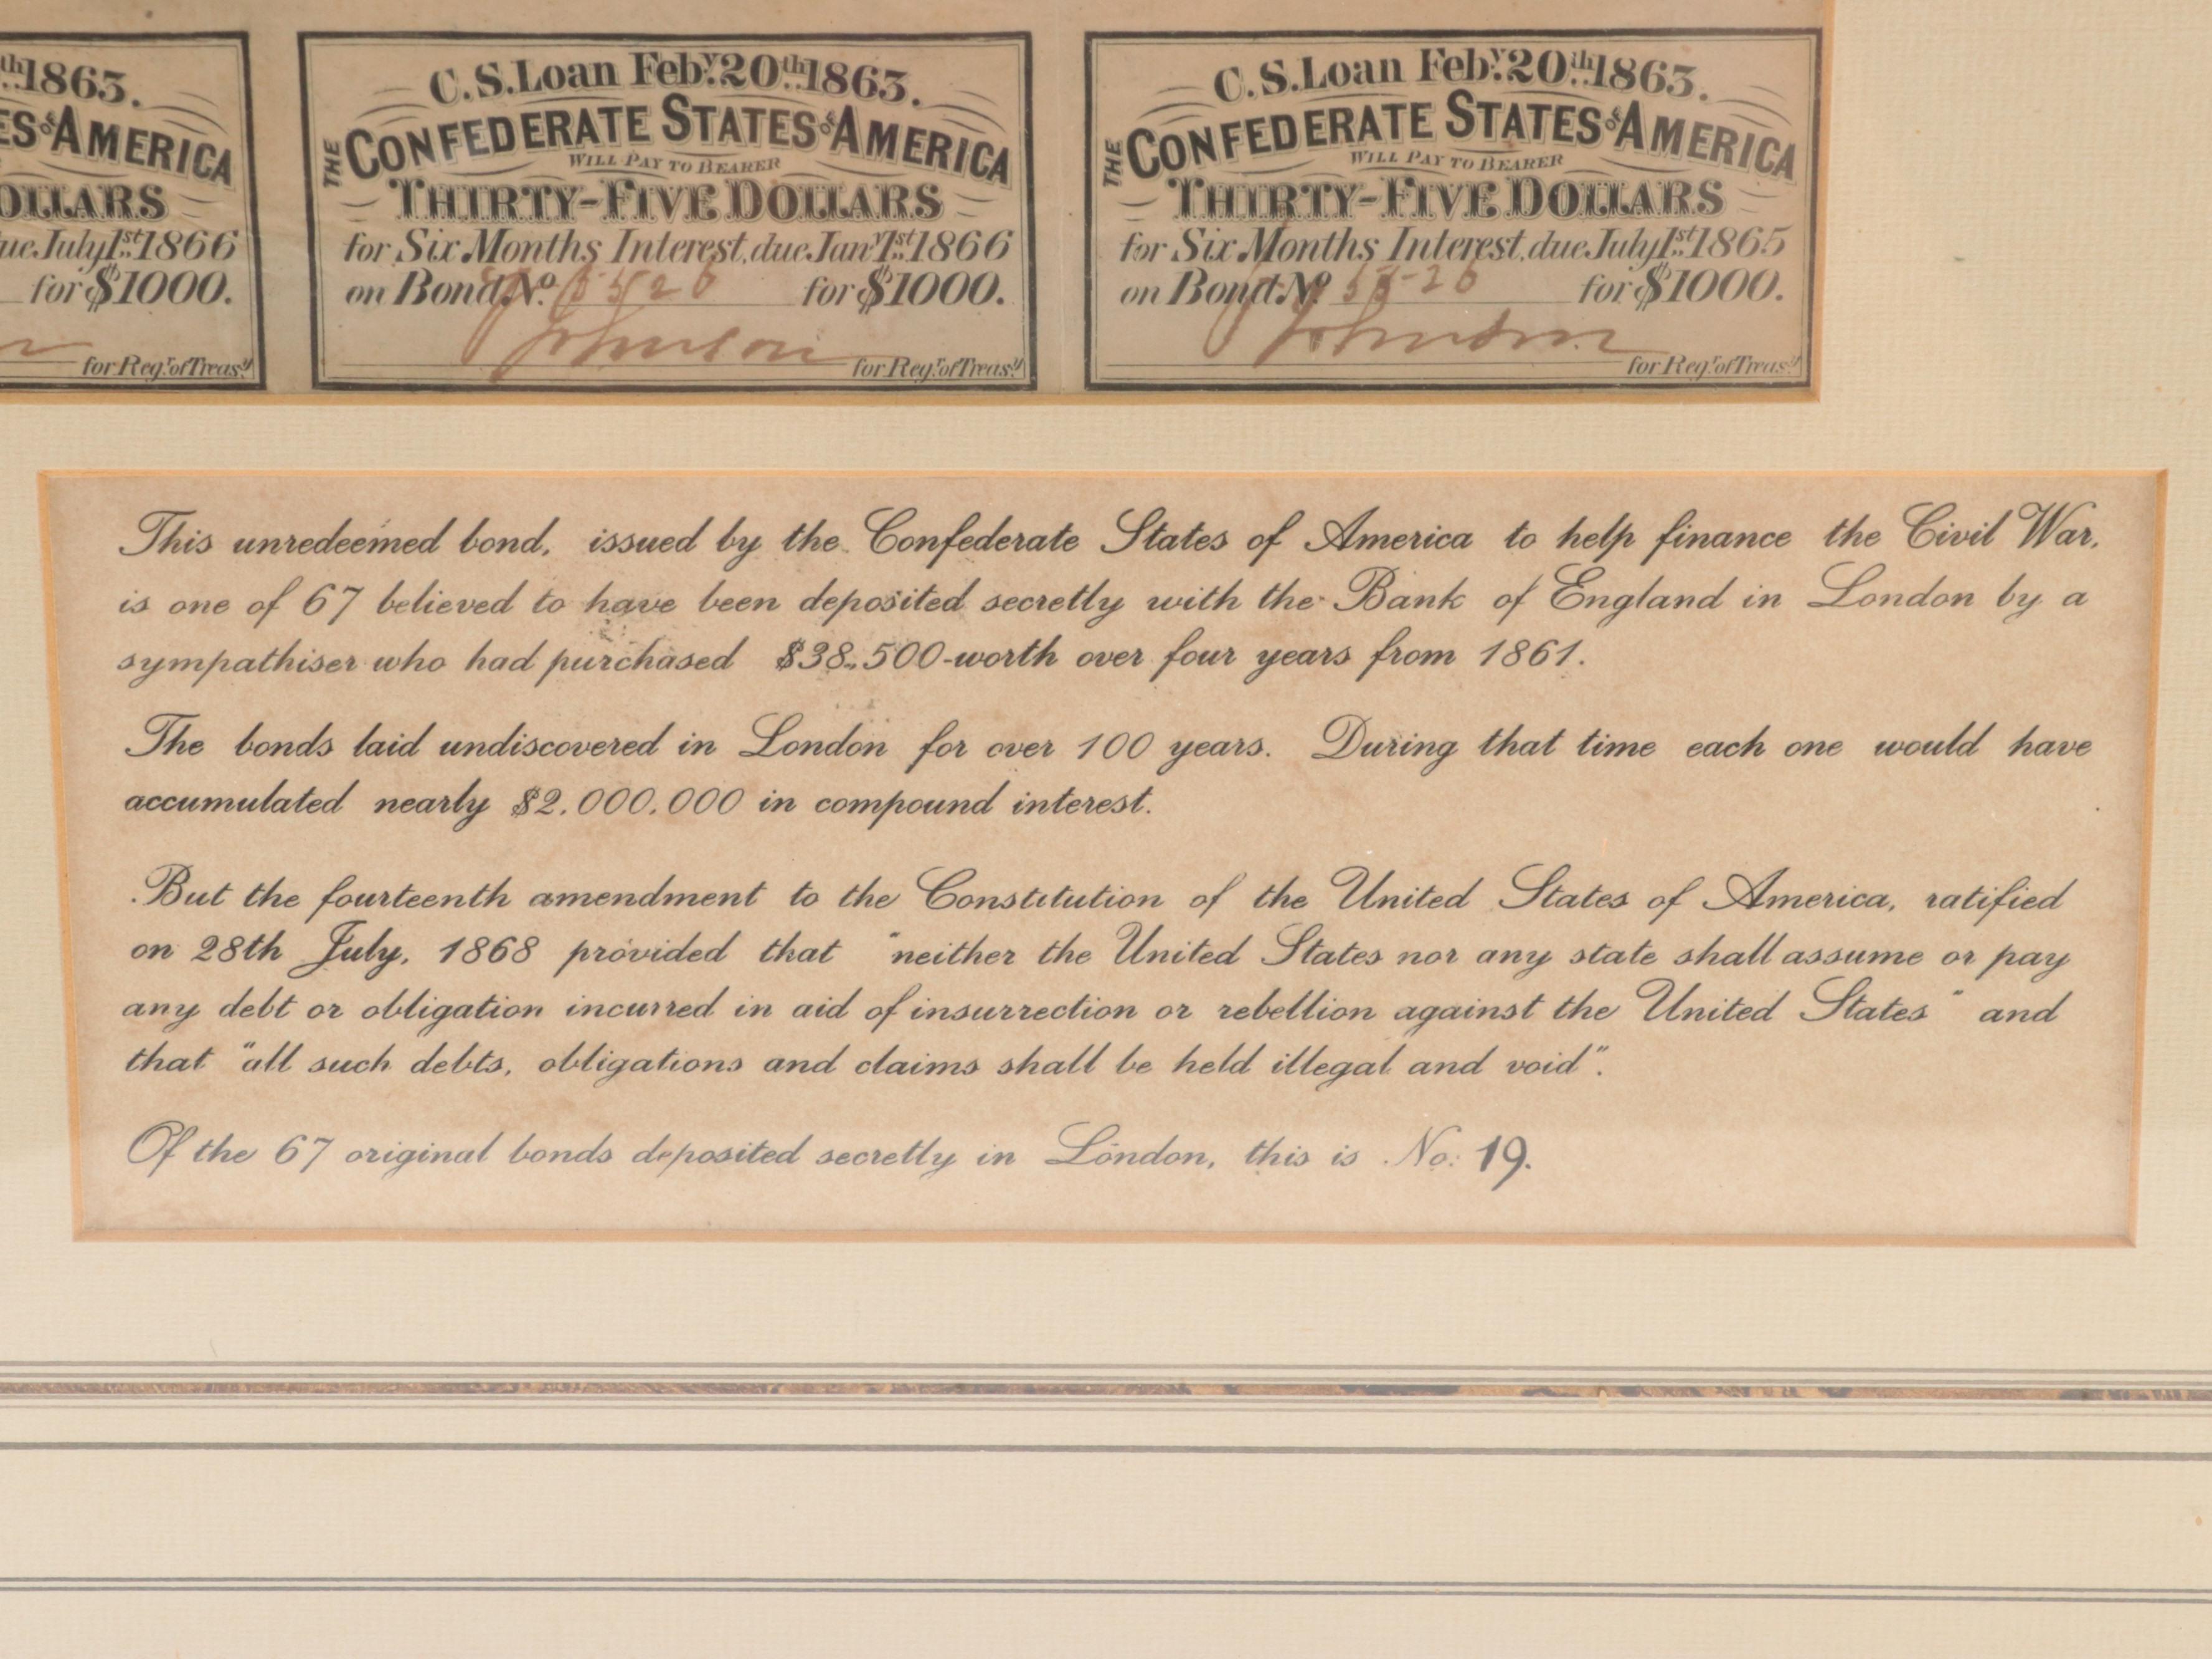 th 1863.
ES OF AMERICA
OLLARS
ue July 1st 1866
for $1000.
for Regr. of Treasy
C.S. Loan Feby. 20th. 1863.
THE CONFEDERATE STATES OF AMERICA
WILL PAY TO BEARER
THIRTY-FIVE DOLLARS
for Six Months Interest, due Jany 1st 1866
on Bond No. for $1000.
Johnson
for Regr. of Treasy
C.S. Loan Feby. 20th. 1863.
THE CONFEDERATE STATES OF AMERICA
WILL PAY TO BEARER
THIRTY-FIVE DOLLARS
for Six Months Interest, due July 1st 1865
on Bond No for $1000.
Johnson
for Regr. of Treasy
This unredeemed bond, issued by the Confederate States of America to help finance the Civil War,
is one of 67 believed to have been deposited secretly with the Bank of England in London by a
sympathiser who had purchased $38,500-worth over four years from 1861.
The bonds laid undiscovered in London for over 100 years. During that time each one would have
accumulated nearly $2,000,000 in compound interest.
But the fourteenth amendment to the Constitution of the United States of America, ratified
on 28th July, 1868 provided that "neither the United States nor any state shall assume or pay
any debt or obligation incurred in aid of insurrection or rebellion against the United States" and
that "all such debts, obligations and claims shall be held illegal and void".
Of the 67 original bonds deposited secretly in London, this is No: 19.